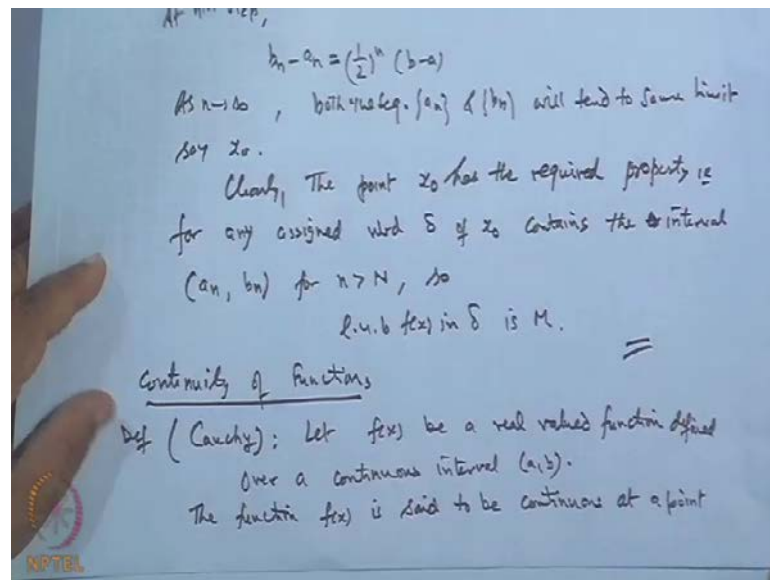 At nth step,
bn - an = (1/2)^n (b-a)
As n→∞, both the seq. {an} & {bn} will tend to same limit
say x0.
Clearly, The point x0 has the required property ie
for any assigned nbd δ of x0 contains the interval
(an, bn) for n > N, so
l.u.b f(x) in δ is M.
Continuity of Functions
Def (Cauchy): Let f(x) be a real valued function defined
over a continuous interval (a,b).
The function f(x) is said to be continuous at a point
NPTEL